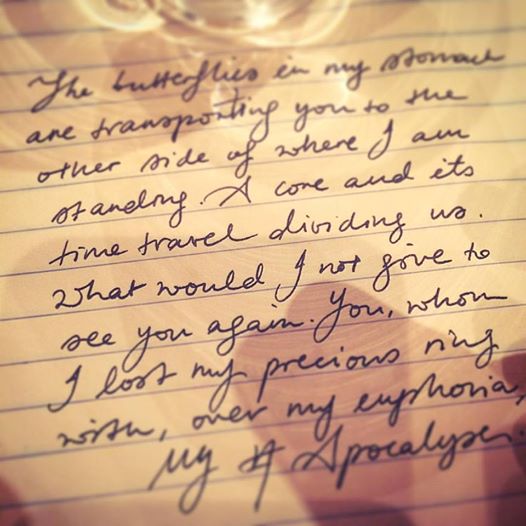 The butterflies in my stomach
are transporting you to the
other side of where I am
standing. A core and its
time travel dividing us.
What would I not give to
see you again. You, whom
I lost my precious ring
with, over my euphoria,
My # Apocalypse.